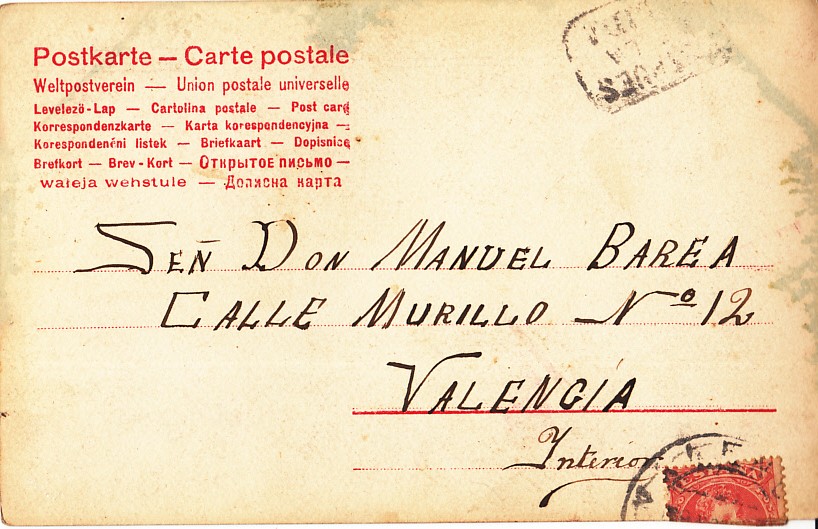 Postkarte — Carte postale
Weltpostverein — Union postale universelle
Levelezö-Lap — Cartolina postale — Post card
Korrespondenzkarte — Karta korespondencyjna —
Korespondenéni listek — Briefkaart — Dopisnice
Brefkort — Brev-Kort — Открытое письмо —
wateja wehstule — Долисна карта
SEÑ DON MANUEL BAREA
CALLE MURILLO Nº 12
VALENCIA
Interior